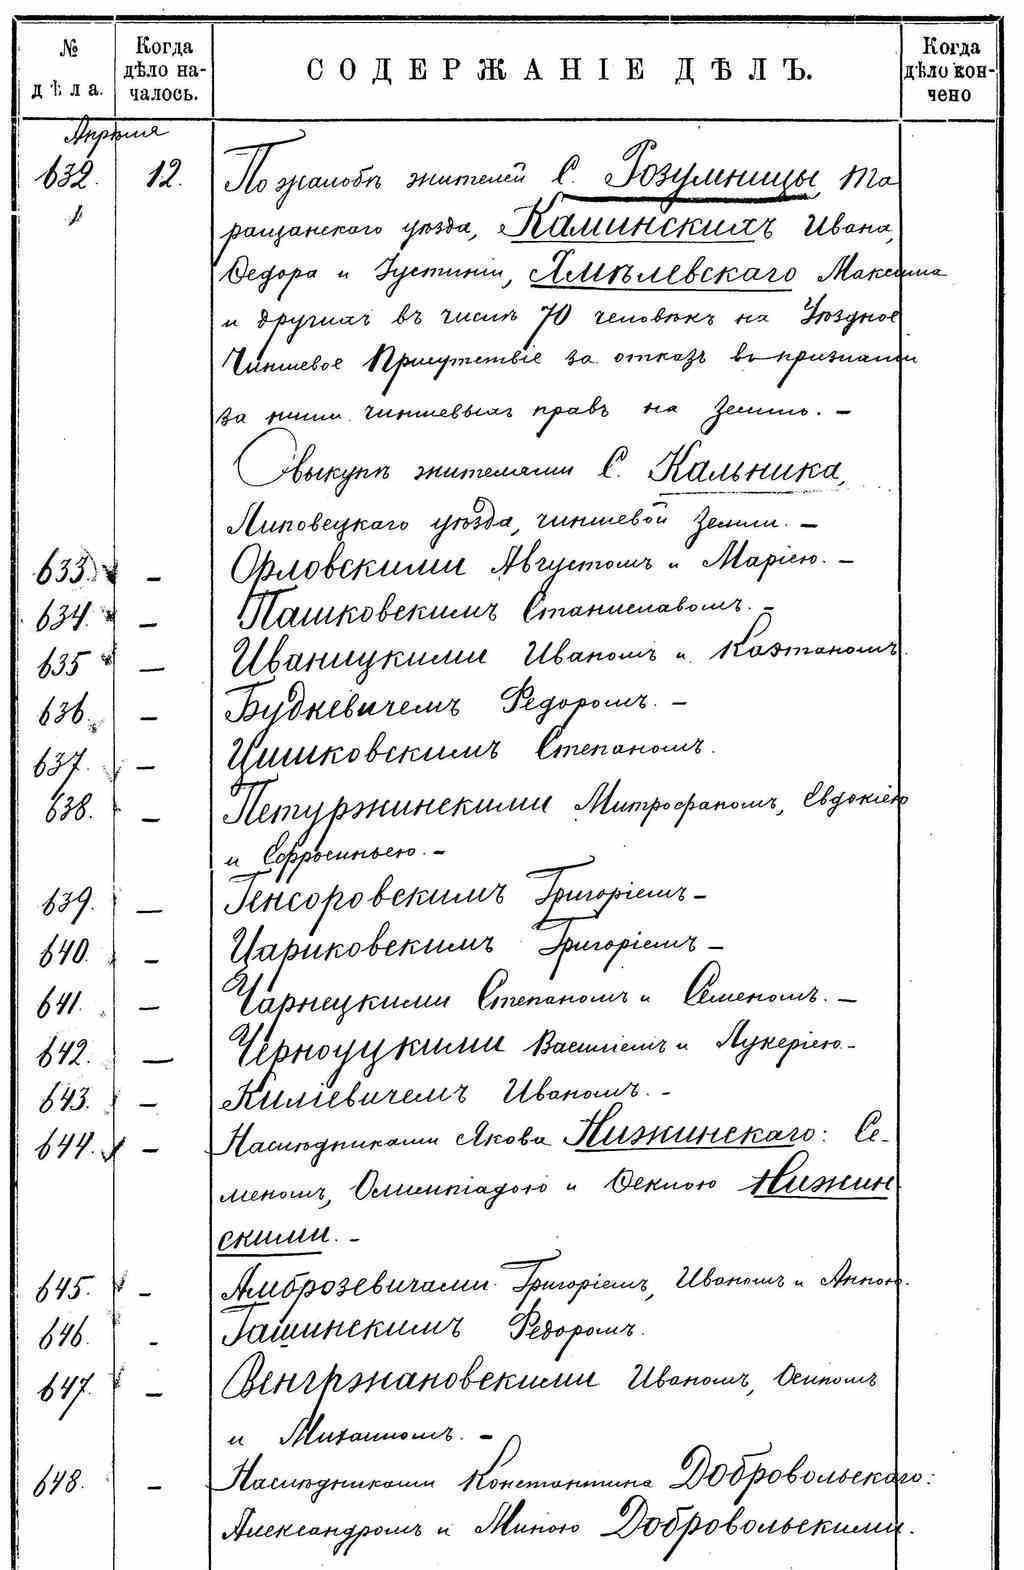 № дѣла.
Когда дѣло началось.
СОДЕРЖАНІЕ ДѢЛЪ.
Когда дѣло кончено
Апрѣля
632. 12. По жалобѣ жителей с. Розумницы, Та
ращанскаго уѣзда, Каминскихъ Ивана,
Ѳедора и Іустиніи, Хмѣлевскаго Максима
и другихъ въ числѣ 70 человѣкъ на Уѣздное
Чиншевое Присутствіе за отказъ въ признаніи
за ними чиншевыхъ правъ на землю. –
О выкупѣ жителями с. Кальника,
Липовецкаго уѣзда, чиншевой земли. –
633. – Орловскими Августомъ и Маріею. –
634. – Пашковскимъ Станиславомъ. –
635 – Иваницкими Иваномъ и Каэтаномъ.
636. – Будкевичемъ Федоромъ. –
637. – Цишковскимъ Степаномъ.
638. – Петуржинскими Митрофаномъ, Евдокіею
и Ефросиньею. –
639. – Генсоровскимъ Григоріемъ –
640. – Цариковскимъ Григоріемъ –
641. – Чарнецкими Степаномъ и Семеномъ. –
642. – Черноуцкими Василіемъ и Лукеріею. –
643. – Киліевичемъ Иваномъ. –
644. – Наслѣдниками Якова Нижинскаго: Се-
меномъ, Олимпіадою и Ѳеклою Нижин
скими. –
645. – Амброзевичами Григоріемъ, Иваномъ и Анною.
646. – Гашинскимъ Федоромъ.
647. – Венгржановскими Иваномъ, Осипомъ
и Михаиломъ. –
648. – Наслѣдниками Константина Добровольскаго:
Александромъ и Миною Добровольскими.